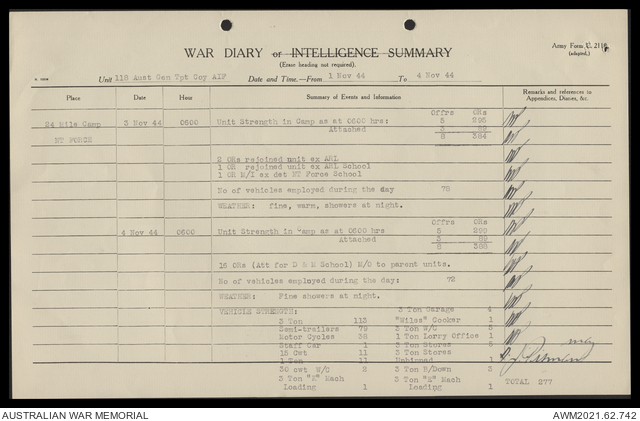 Army Form C. 2118.
(adapted.)
WAR DIARY or INTELLIGENCE SUMMARY
(Erase heading not required).
Unit 118 Aust Gen Tpt Coy AIF Date and Time.—From 1 Nov 44 To 4 Nov 44
Place Date Hour Summary of Events and Information Remarks and references to
Appendices, Diaries, &c.
Offrs ORs
24 Mile Camp 3 Nov 44 0600 Unit Strength in Camp as at 0600 hrs: 5 295
Attached 3 89
NT FORCE 8 384
2 ORs rejoined unit ex AWL
1 OR rejoined unit ex School
1 OR M/I ex det NT Force School
No of vehicles employed during the day 78
WEATHER: fine, warm, showers at night.
Offrs ORs
4 Nov 44 0600 Unit Strength in Camp as at 0600 hrs 5
Attached 3 89
8
16 ORs (Att for D & M School) M/O to parent units.
No of vehicles employed during the day: 72
WEATHER: Fine showers at night.
VEHICLE STRENGTH: 3 Ton Garage 4
3 Ton 113 "Wiles" Cooker 1
Semi-trailers 79 3 Ton W/C 5
Motor Cycles 38 1 Ton Lorry Office 1
Staff Car 1 3 Ton Stores
15 Cwt 11 3 Ton Stores
1 Ton 11 1
30 cwt W/C 2 3 Ton B/Down 3
3 Ton "K" Mach 3 Ton "E" Mach
Loading 1 Loading 1
TOTAL 277
AUSTRALIAN WAR MEMORIAL AWM2021.62.742